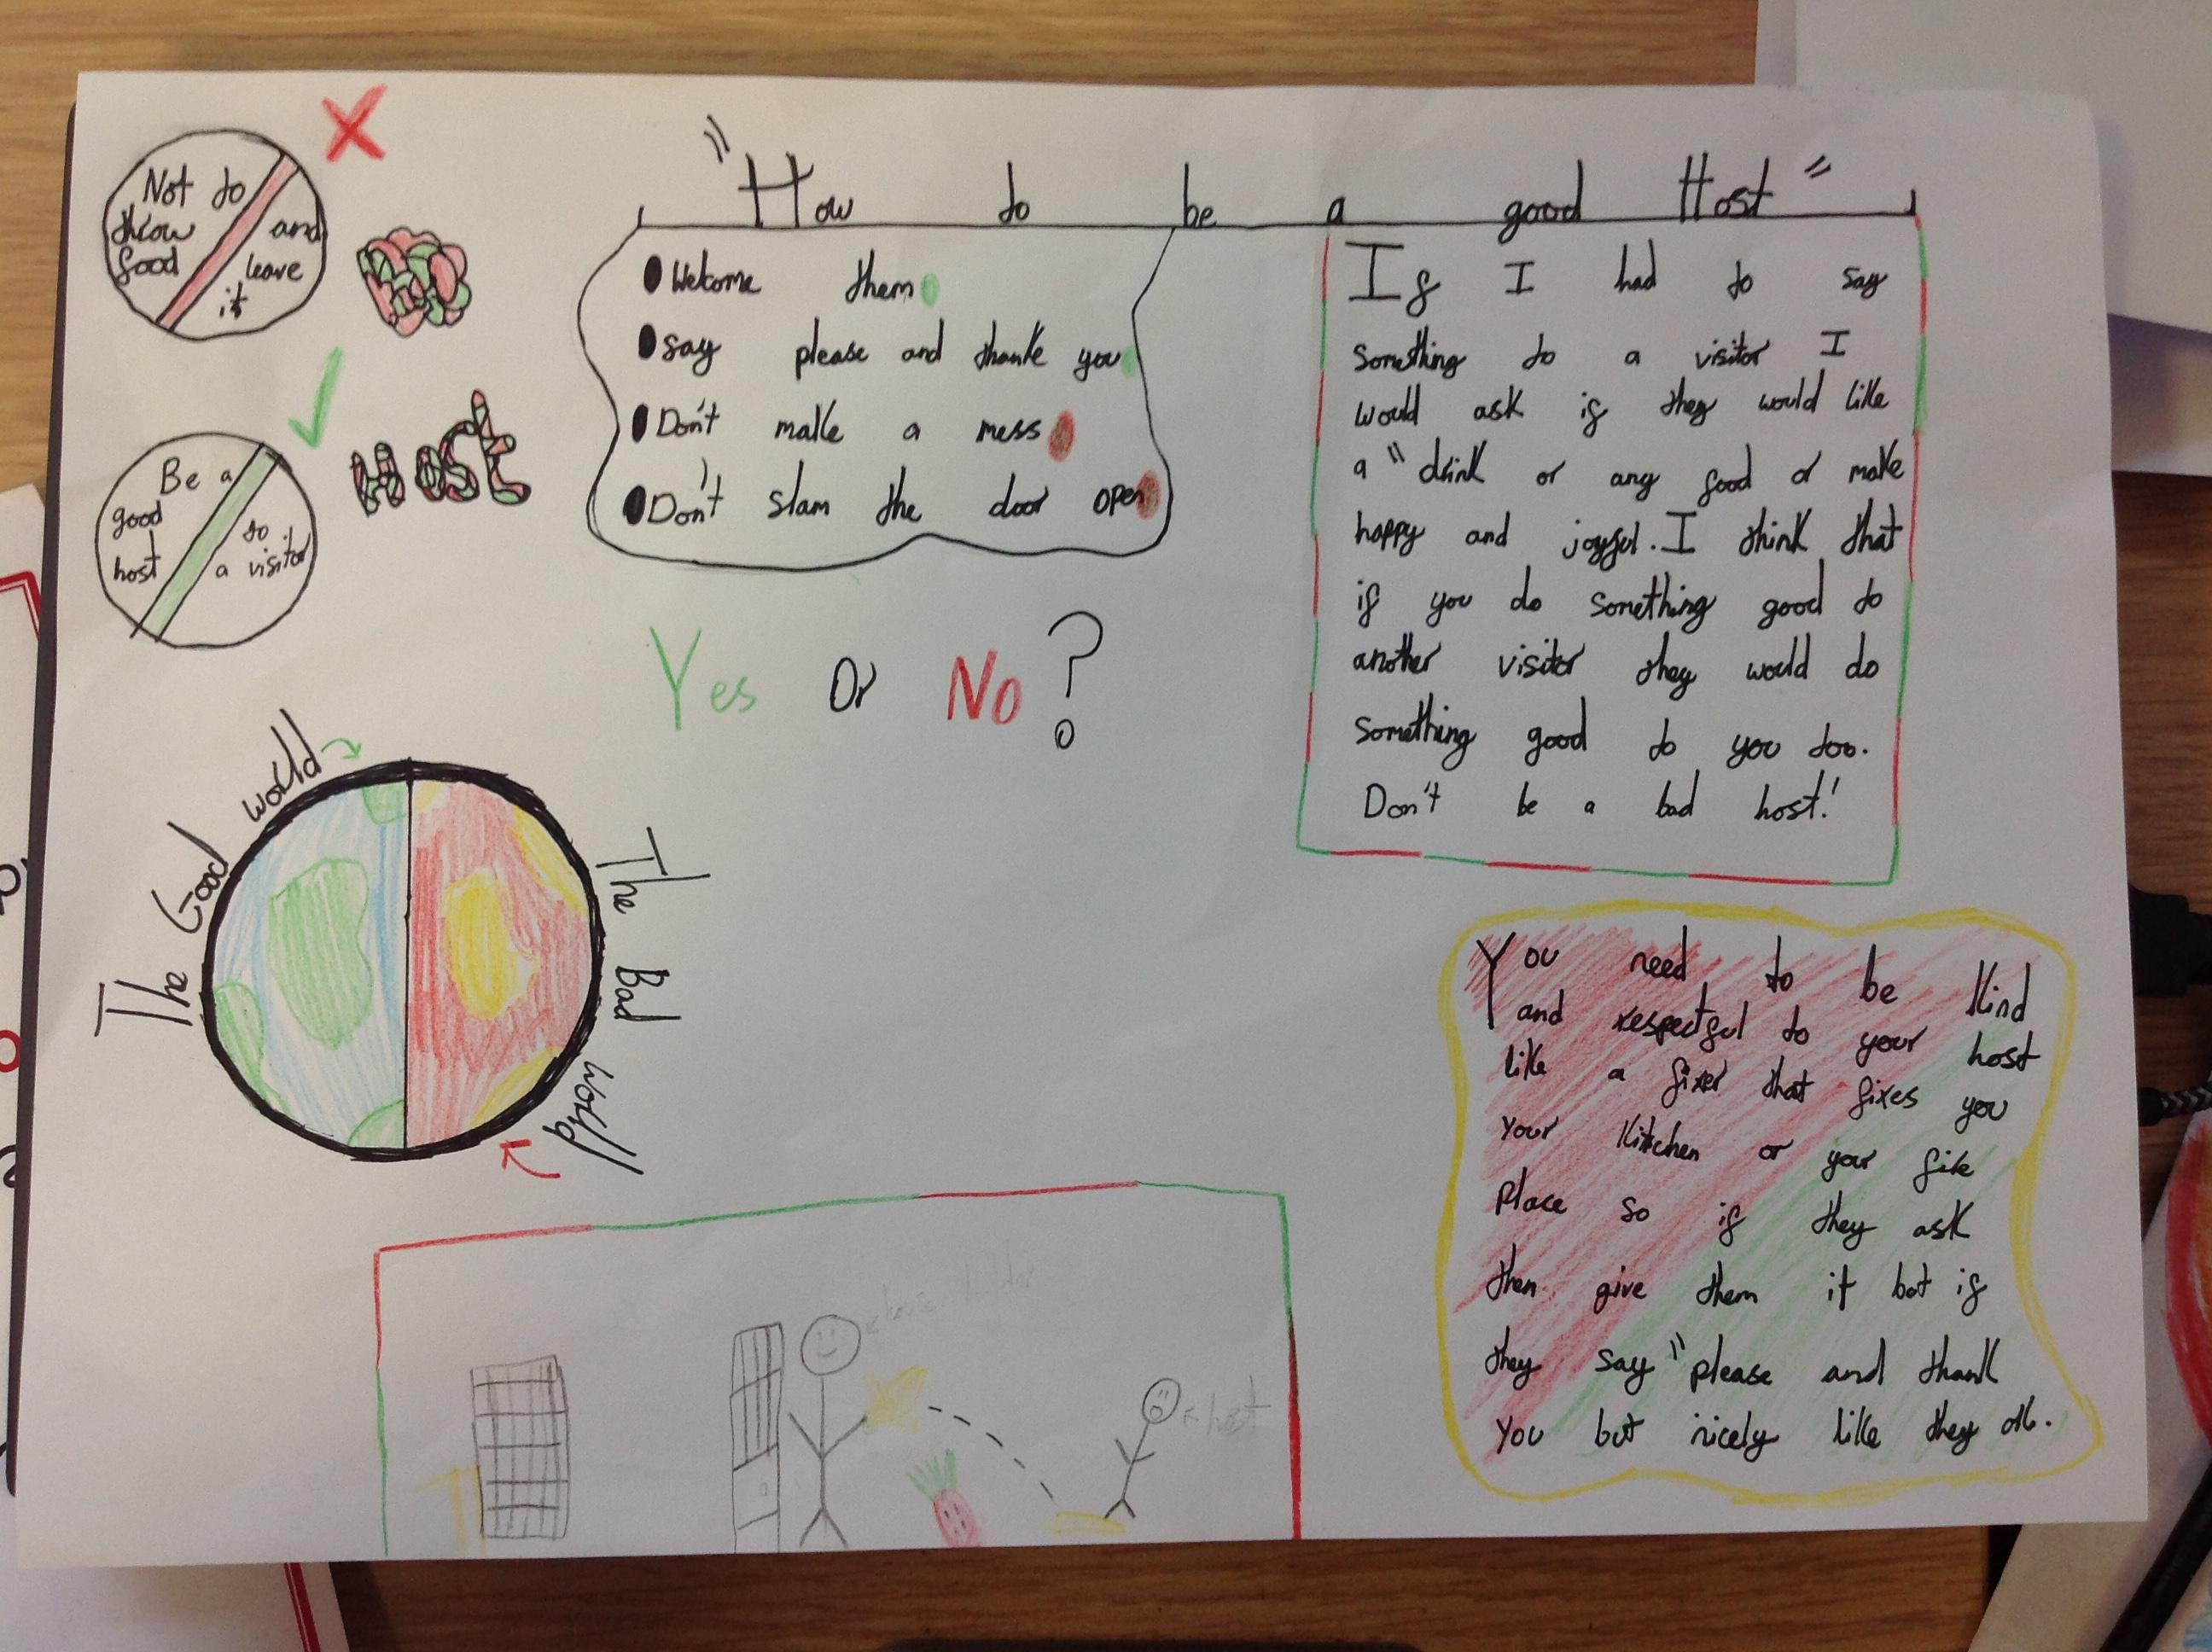 "How to be a good Host"
Not to
throw
food
and
leave
it
Be a
good
host
to
a visitor
HOST
Welcome them
say please and thank you
Don't make a mess
Don't slam the door open
Yes or No?
If I had to say
something to a visitor I
would ask if they would like
a " drink or any food or make
happy and joyful. I think that
if you do something good to
another visitor they would do
something good to you too.
Don't be a bad host!
The Good world
The Bad world
You need to be kind
and respectful to your host
like a fixer that fixes you
your kitchen or your
place so if they ask
then give them it but if
they say " please and thank
you but nicely like they
host